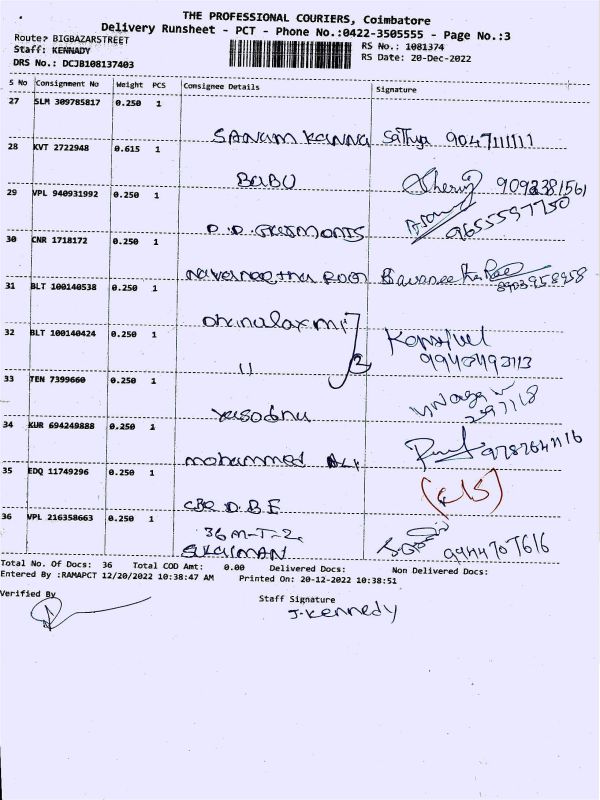 THE PROFESSIONAL COURIERS, Coimbatore
Delivery Runsheet - PCT - Phone No.:0422-3505555 - Page No.:3
Route: BIGBAZARSTREET
RS No.: 1081374
Staff: KENNADY
RS Date: 20-Dec-2022
DRS No.: DCJB108137403
S No Consignment No Weight PCS Consignee Details Signature
27 SLM 309785817 0.250 1
SANUM KANNA Sathya 9047111111
28 KVT 2722948 0.615 1
BABU
29 VPL 940931992 0.250 1
9655597750
30 CNR 1718172 0.250 1
31 BLT 100140538 0.250 1
8903958958
Dhanalaxmi
32 BLT 100140424 0.250 1
11 2
33 TEN 7399660 0.250 1
Yasodha
34 KUR 694249888 0.250 1
mohammed Ali
35 EDQ 11749296 0.250 1
CBE D.B.E
36 VPL 216358663 0.250 1
36 M-T-2
SULAIMAN 9944707616
Total No. Of Docs: 36 Total COD Amt: 0.00 Delivered Docs: Non Delivered Docs:
Entered By :RAMAPCT 12/20/2022 10:38:47 AM Printed On: 20-12-2022 10:38:51
Verified By
Staff Signature
J. Kennedy